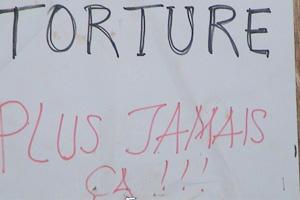 TORTURE
PLUS JAMAIS
ÇA !!!